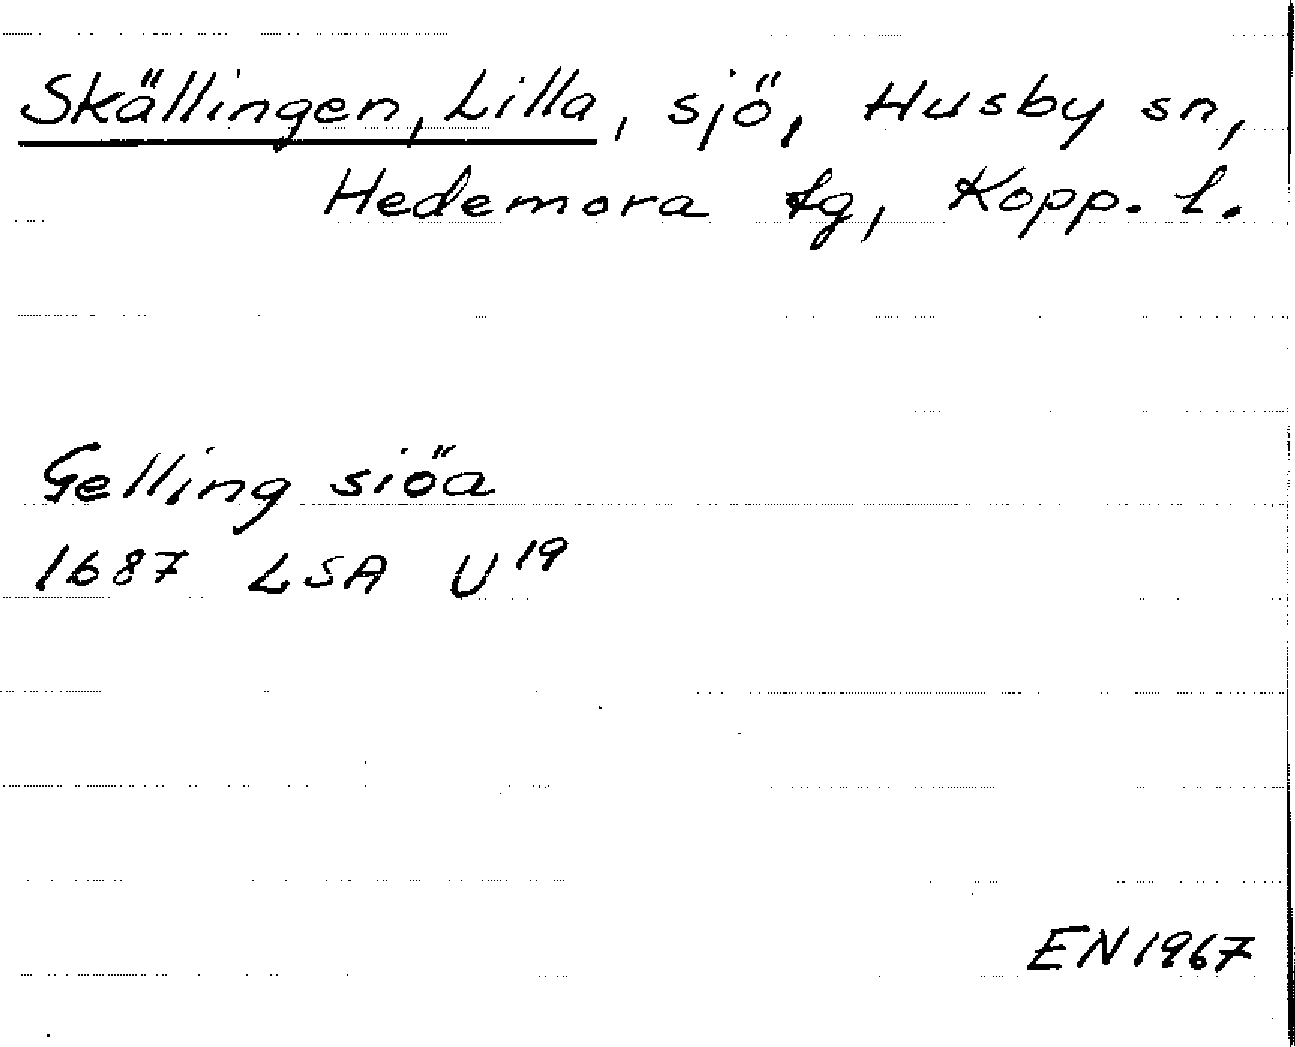 Skällingen, Lilla, sjö, Husby sn,
Hedemora tg, Kopp. l.
Gelling siöa
1687 LSA U19
EN 1967